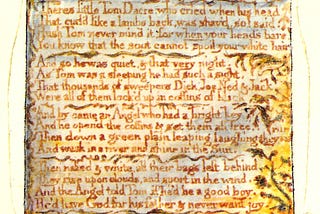 Theres little Tom Dacre who cried when his head
That curld like a lambs back, was shav'd, so I said,
Hush Tom never mind it, for when your heads bare,
You know that the soot cannot spoil your white hair
And so he was quiet, & that very night,
As Tom was a sleeping he had such a sight,
That thousands of sweepers Dick, Joe, Ned & Jack
Were all of them lock'd up in coffins of
And by came an Angel who had a bright key
And he open'd the coffins & set them all free
Then down a green plain leaping laughing they
And wash in a river and shine in the Sun.
Then naked & white, all their bags left behind,
They rise upon clouds, and sport in the wind.
And the Angel told Tom if he'd be a good boy,
He'd have God for his father & never want joy